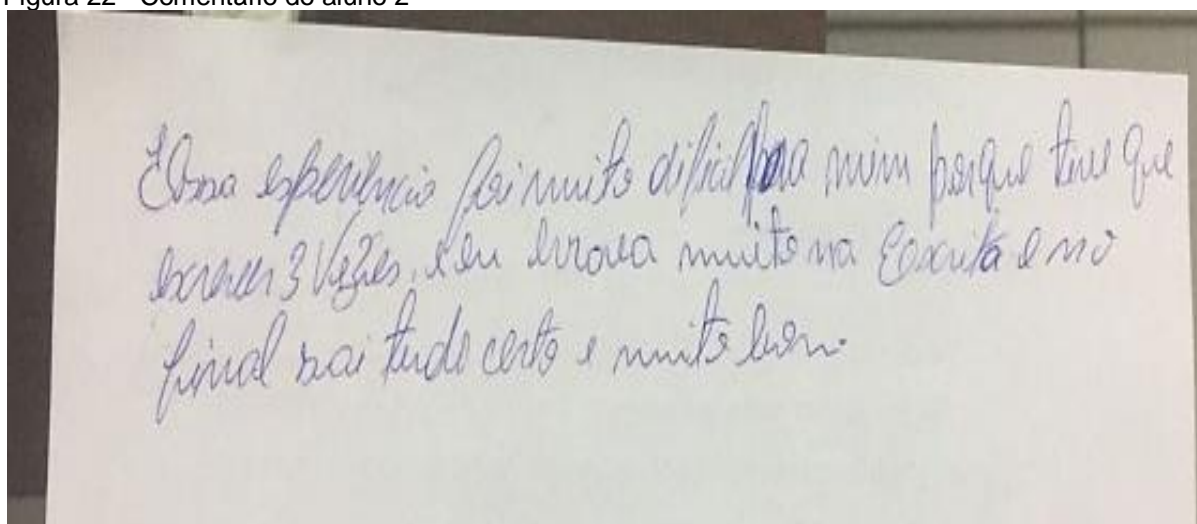 Figura 22 - Comentário do aluno 2
Essa esperiência foi muito dificil para mim porque tive que
escrever 3 Vezes, e eu errava muito na Escrita e no
final sai tudo certo e muito bom.